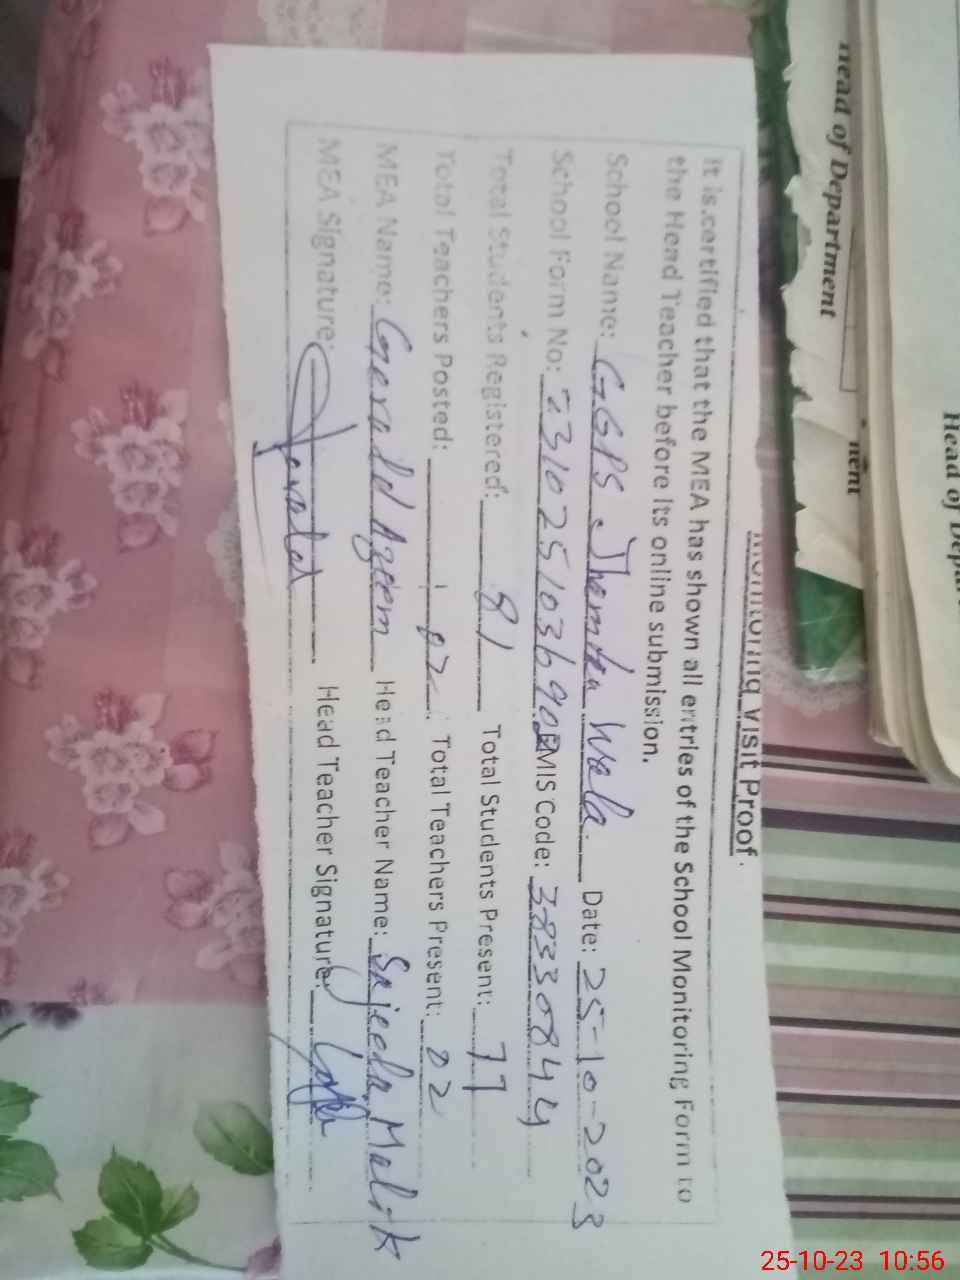 Monitoring Visit Proof
It is certified that the MEA has shown all entries of the School Monitoring Form to
the Head Teacher before its online submission.
School Name: GGPS. Jhemden Wala. Date: 25-10-2023
School Form No: 231025103690 EMIS Code: 38330844
Total Students Registered: 81 Total Students Present: 77
Total Teachers Posted: 02 Total Teachers Present: 02
MEA Name: Gerald Azeem Head Teacher Name: Sajeela Malik
MEA Signature: Gerald Head Teacher Signature:
Head of Department
nent
Head of Depar
25-10-23 10:56